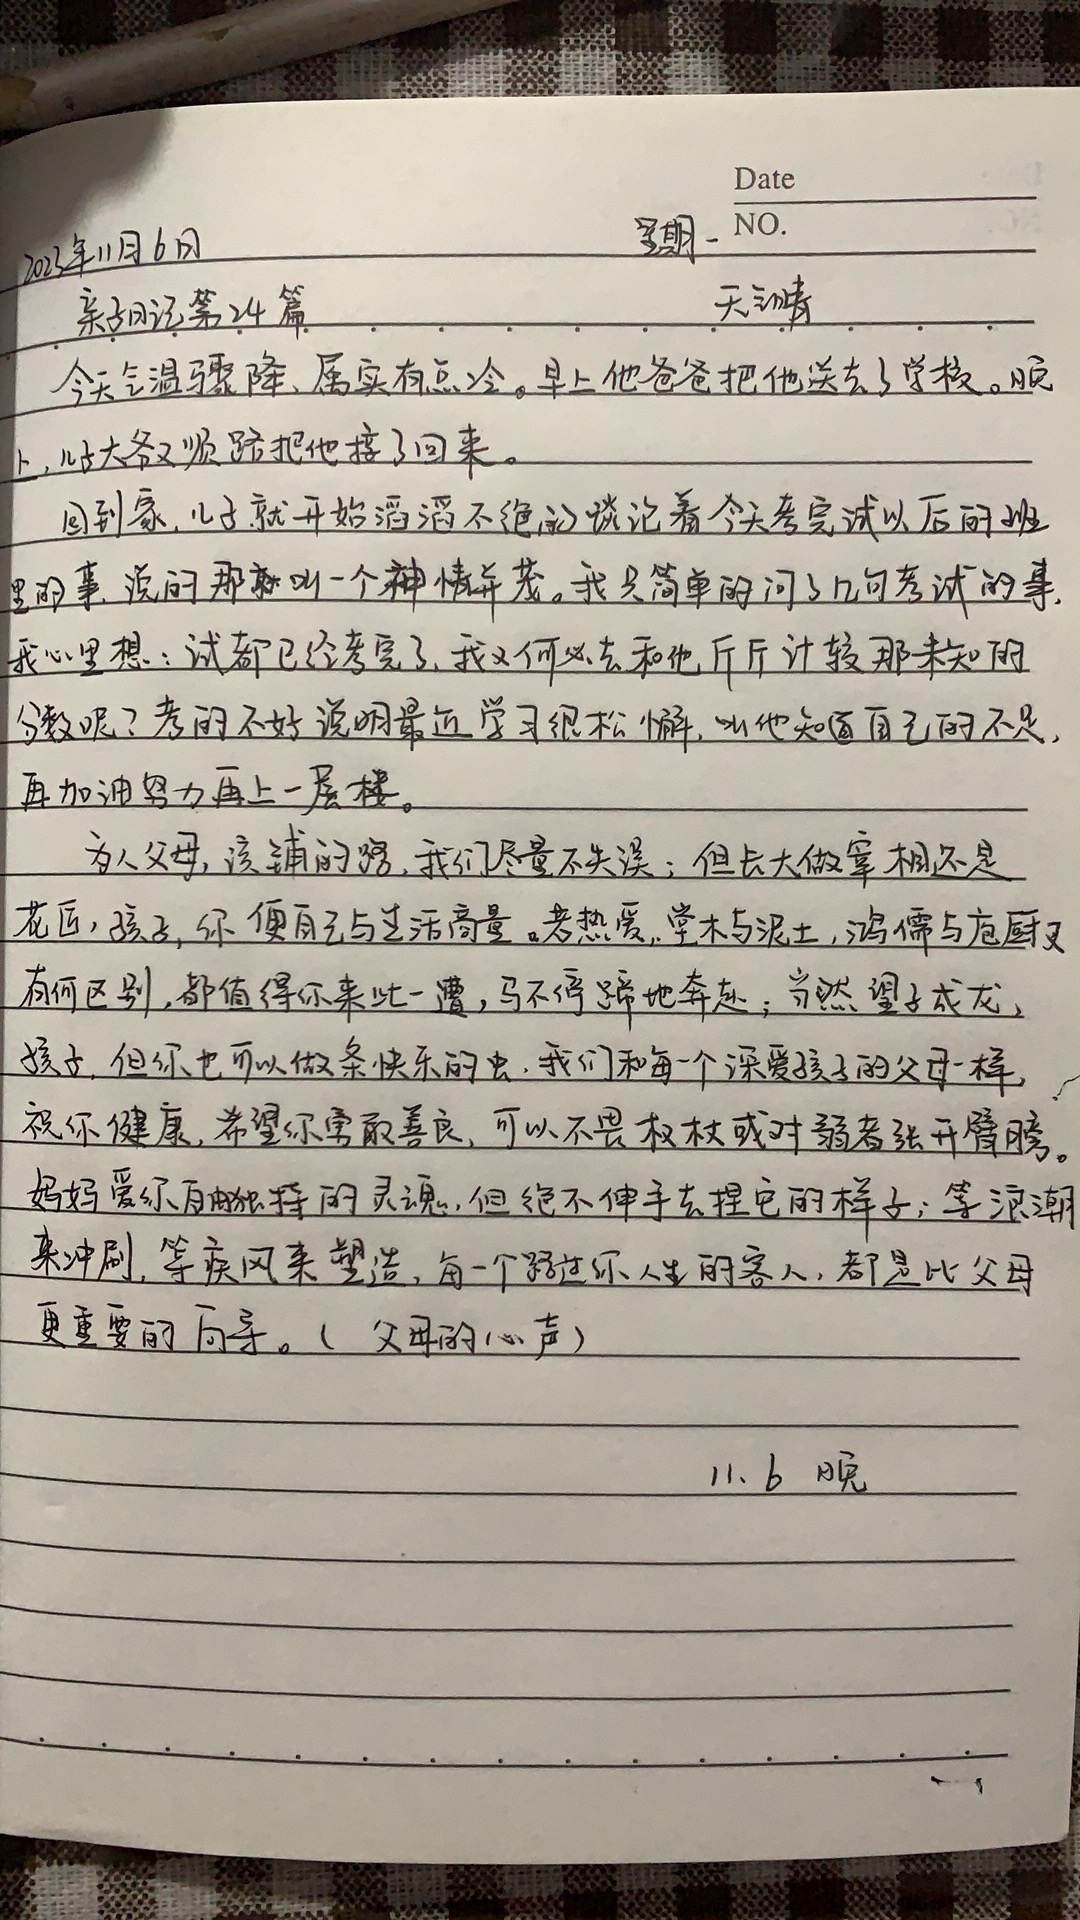 Date
NO.
2023年11月6日 星期一
亲子日记第24篇 天气晴
今天气温骤降、属实有点冷。早上他爸爸把他送去了学校。晚
上,儿子大爷又顺路把他接了回来。
回到家,儿子就开始滔滔不绝的谈论着今天考完试以后的班
里的事,说的那叫一个神情并茂。我只简单的问了几句考试的事,
我心里想:试都已经考完了,我又何必去和他斤斤计较那未知的
分数呢?考的不好说明最近学习很松懈,叫他知道自己的不足,
再加油努力再上一层楼。
为人父母,该铺的路,我们尽量不失误;但长大做宰相还是
花匠,孩子,你便自己与生活商量。若热爱,堂木与泥土,鸿儒与庖厨又
有何区别,都值得你来此一遭,马不停蹄地奔赴;当然望子成龙,
孩子,但你也可以做条快乐的虫,我们和每一个深爱孩子的父母一样,
祝你健康,希望你勇敢善良,可以不畏权杖或对弱者张开臂膀。
妈妈爱你自由独特的灵魂,但绝不伸手去捏它的样子;等浪潮
来冲刷,等疾风来塑造,每一个路过你人生的客人,都是比父母
更重要的向导。(父母的心声)
11.6 晚